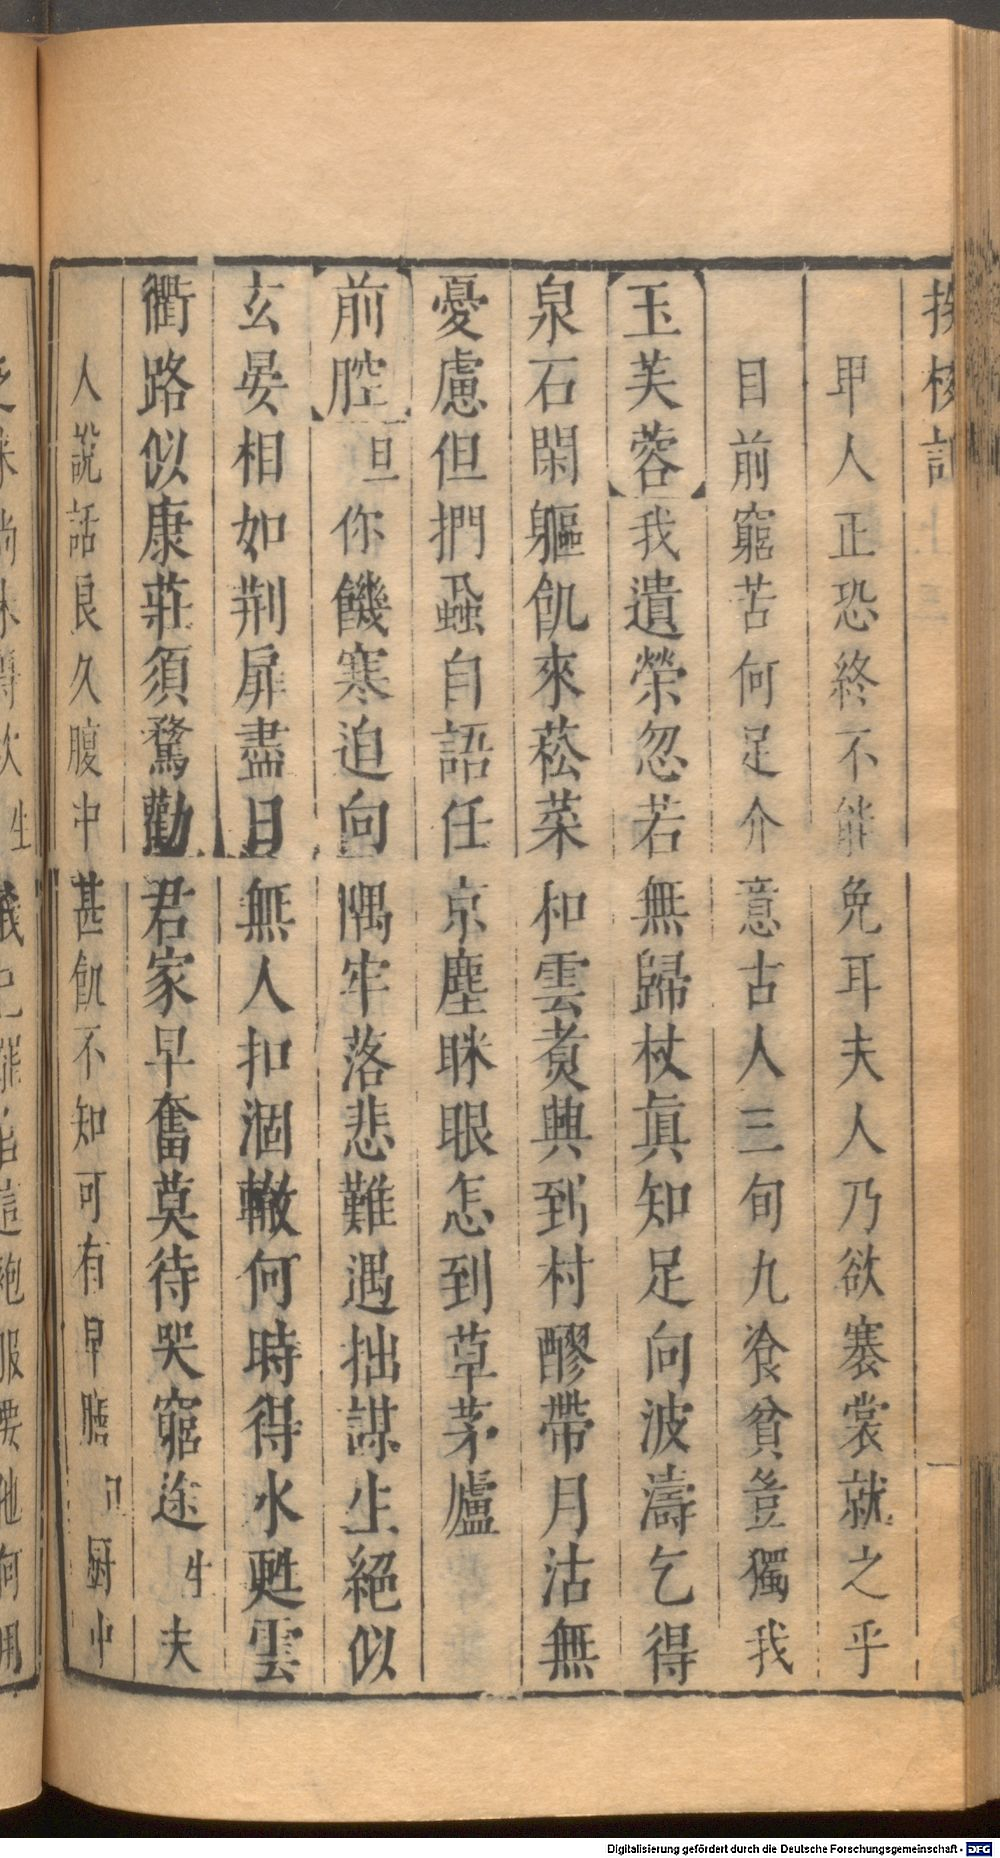 投梭記
甲人正恐終不能免耳夫人乃欲褰裳就之乎
目前窮苦何足介意古人三旬九飡貧豈獨我
玉芙蓉我遺榮忽若無歸杖眞知足向波濤乞得
泉石閑軀飢來菘菜和雲煑興到村醪帶月沽無
憂慮但捫蝨自語任京塵眯眼怎到草茅廬
前腔旦你饑寒迫向隅牢落悲難遇拙謀生絕似
玄晏相如荆扉盡日無人扣涸轍何時得水甦雲
衢路似康莊須騖勸君家早奮莫待哭窮途生夫
人說話良久腹中甚飢不知可有早膳旦厨中
Digitalisierung gefördert durch die Deutsche Forschungsgemeinschaft - DFG